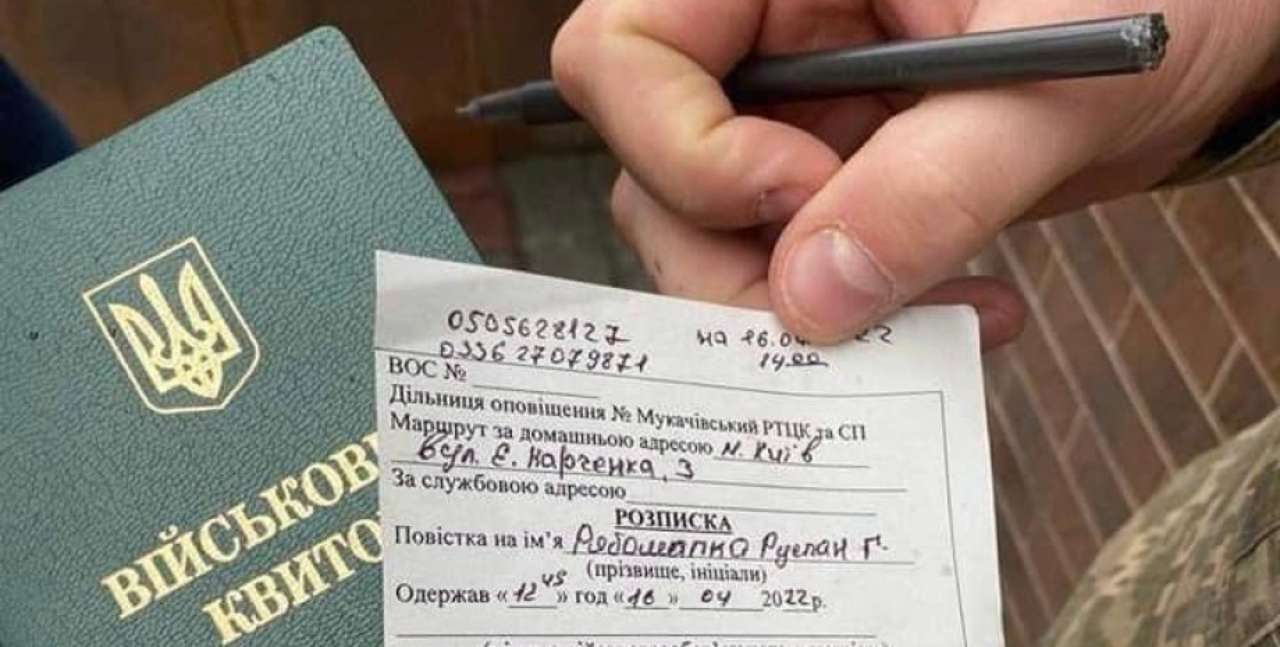 ВІЙСЬКОВ
КВИТО
0505628127
0336 27079871
на 16.04 22
14.00
ВОС №
Дільниця оповіщення № Мукачівський РТЦК та СП
Маршрут за домашньою адресою м. Київ
вул. Є. Харченка, 3
За службовою адресою
РОЗПИСКА
Повістка на ім'я Руслан Г.
(прізвище, ініціали)
Одержав «12 45» год «16» 04 2022р.